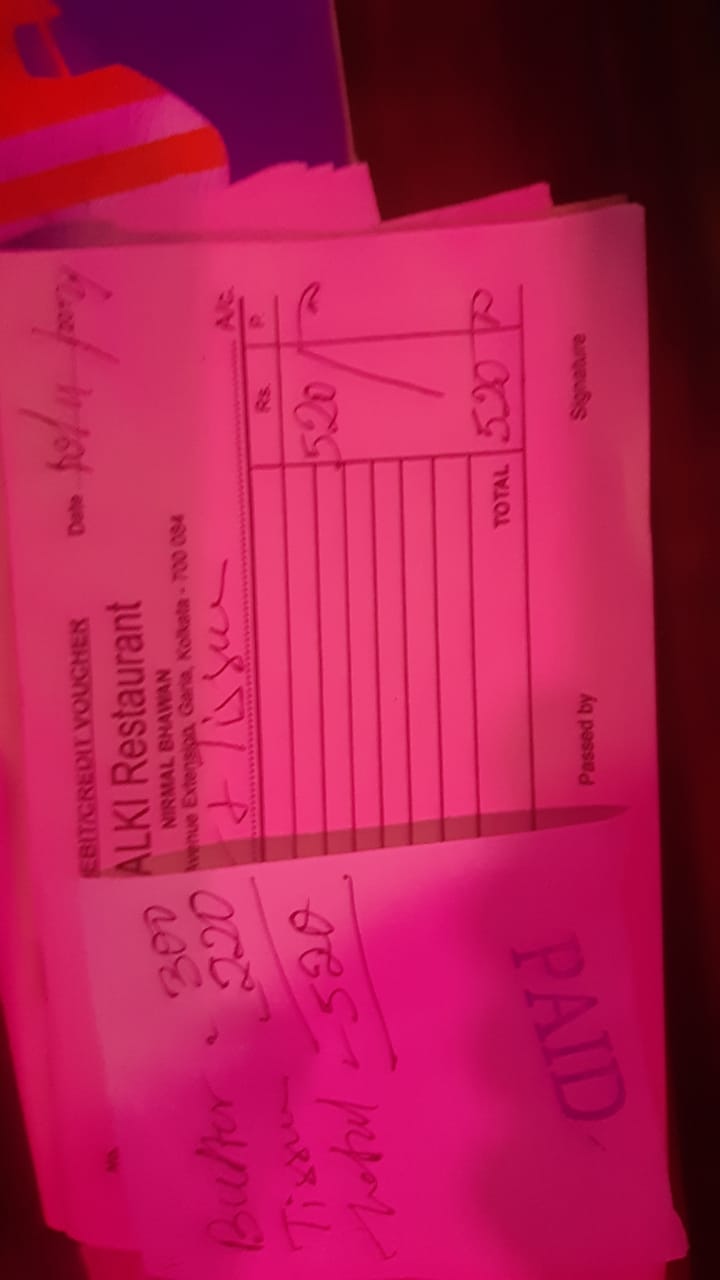 EBIT/CREDIT VOUCHER
Date
ALKI Restaurant
NIRMAL BHAWAN
venue Extension, Garia, Kolkata - 700 084
+ Tissue
A/c.
Rs. P.
520
TOTAL 520
Passed by Signature
No.
Butter - 300
Tissue 220
Total - 520
PAID